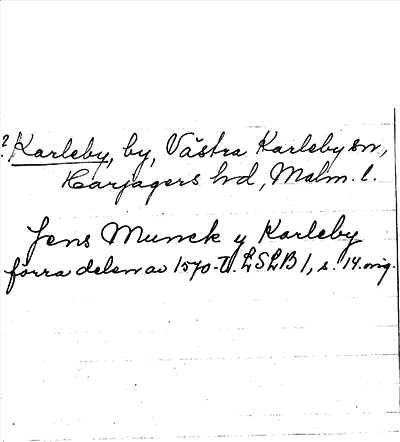 ? Karleby, by, Västra Karleby sn,
Harjagers hd, Malm. l.
Jens Munck y Karleby
förra delen av 1570-t. LSLB 1, s. 14. orig.